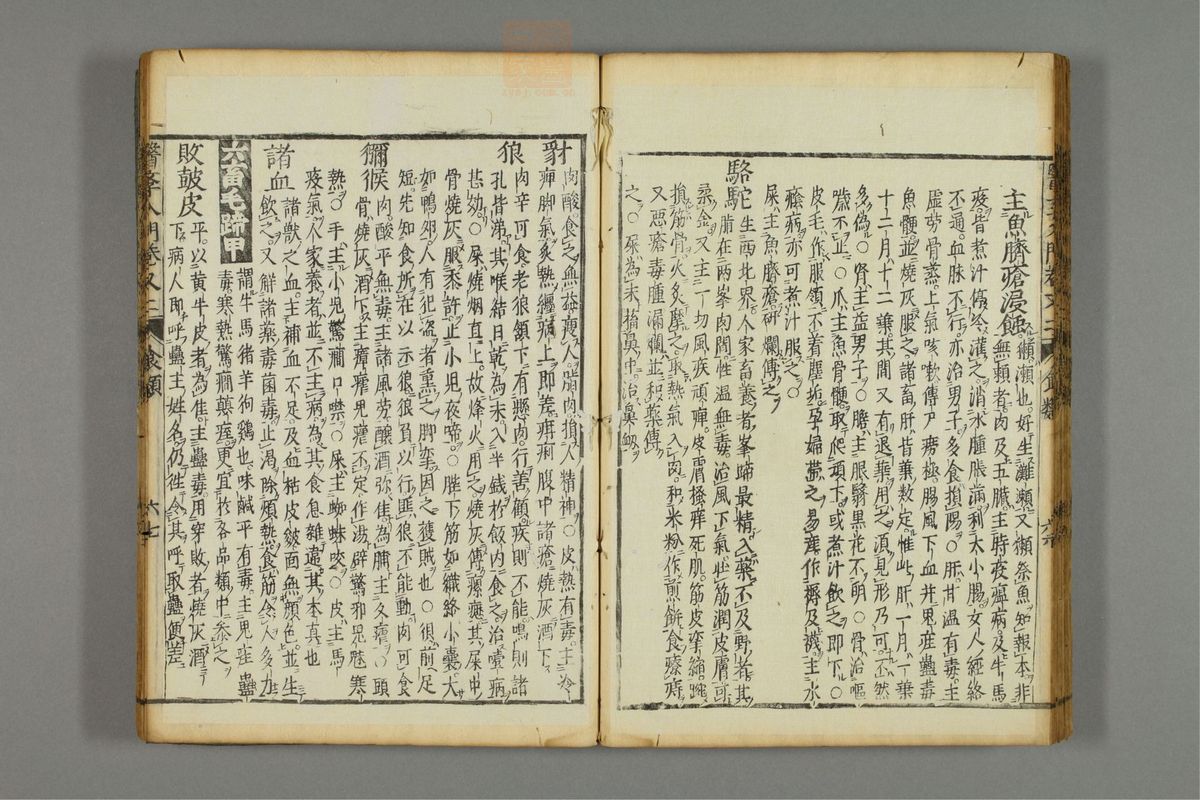 主魚臍瘡浸蝕獺瀨也好生灘瀨又獺祭魚知報本非
無賴者肉及五臟主時夜瘟病及牛馬
疫皆煮汁停冷灌之消水腫脹滿利大小腸女人經絡
不通血脉不行亦治男子多食損陽〇肝甘溫有毒主
虛勞骨蒸上氣咳嗽傳尸勞極腸風下血并鬼疰蠱毒
魚骾並燒灰服之諸畜肝皆葉數定惟此肝一月一葉
十二月十二葉其間又有退葉用之須見形乃可不然
多偽〇腎主益男子〇膽主眼翳黑花不明〇骨治嘔
噦不止〇爪主魚骨骾取爬項下或煮汁飲之即下〇
皮毛作服領不着塵垢孕婦帶之易產作褥及襪主水
癊病亦可煮汁服之
屎主魚臍瘡研爛傅之
駱駝生西北界人家畜養者峯蹄最精入藥不及野者其
脂在兩峯肉間性溫無毒治風下氣壯筋潤皮膚可
柔金又主一切風疾頑痺皮膚搔痒死肌筋皮攣縮踠
損筋骨火炙摩之取熱氣入肉和米粉作煎餅食療痔
又惡瘡毒腫漏爛並和藥傅
之〇尿為末搐鼻中治鼻衄
豺肉酸食之無益瘦人脂肉損人精神〇皮熱有毒主冷
痺脚氣炙熱纏病上即差疳痢腹中諸瘡燒灰酒下
狼肉辛可食老狼頷下有懸肉行善顧疾則不能鳴則諸
孔皆沸其喉結日乾為末入半錢於飯內食之治噎病
甚効〇屎燒烟直上故烽火用之燒灰傅瘰癧其屎中
骨燒灰服黍許止小兒夜啼〇䏶下筋如織絡小囊大
如鴨卵人有犯盜者熏之脚攣因之獲賊也〇狽前足
短先知食所在以示狼狼負以行匪狼不能動肉可食
獼猴肉酸平無毒主諸風勞釀酒弥佳為脯主久瘧〇頭
骨燒灰酒下主瘴瘧鬼瘧不定作湯辟驚邪鬼魅寒
熱〇手主小兒驚癇口噤〇屎主蜘蛛咬〇皮主馬
疫氣人家養者並不主病為其食息雜違其本真也
諸血諸獸之血主補血不足及血枯皮皺面無顏色並生
飲之又觧諸藥毒菌毒止渴除煩熱食筋令人多力
六畜毛蹄甲謂牛馬猪羊狗鷄也味鹹平有毒主鬼疰蠱
毒寒熱驚癇癲痙更宜於各品類中參之
敗鼓皮平以黃牛皮者為佳主蠱毒用穿敗者燒灰酒
下病人即呼蠱主姓名仍徃令其呼取蠱便差
六七